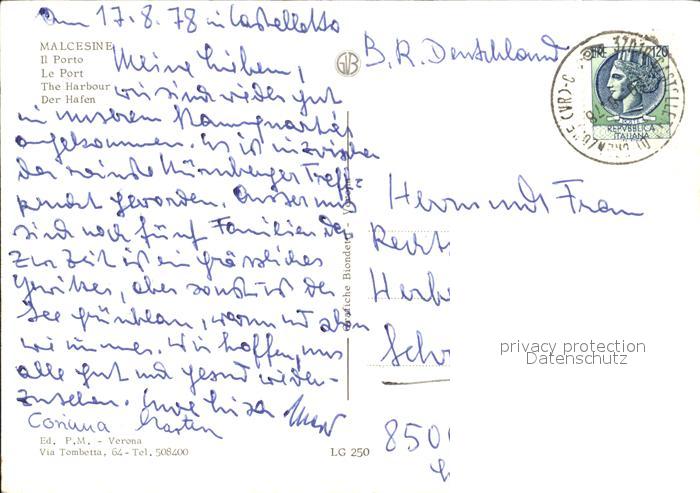 Am 17.8.78 in Castelletto
MALCESINE
Il Porto
Le Port
The Harbour
Der Hafen
Meine Lieben,
wir sind wieder gut
in unserem Stammquartier
angekommen. Es ist inzwischen
der reinste Nürnberger Treff-
punkt geworden. Ausser uns
sind noch fünf Familien da.
Zur Zeit ist ein grässliches
Gewitter, aber sonst ist der
See grünblau, warm und schön
wie immer. Wir hoffen, uns
alle gut und gesund wieder-
zusehen. Eure
Martin
Ed. P.M. - Verona
Via Tombetta, 64 - Tel. 508400
LG 250
Grafiche Biondetti - Verona
B.R. Deutschland
LIRE 120
REPVBBLICA
ITALIANA
Herrn und Frau
Recht
Herbe
Schw
850
privacy protection
Datenschutz